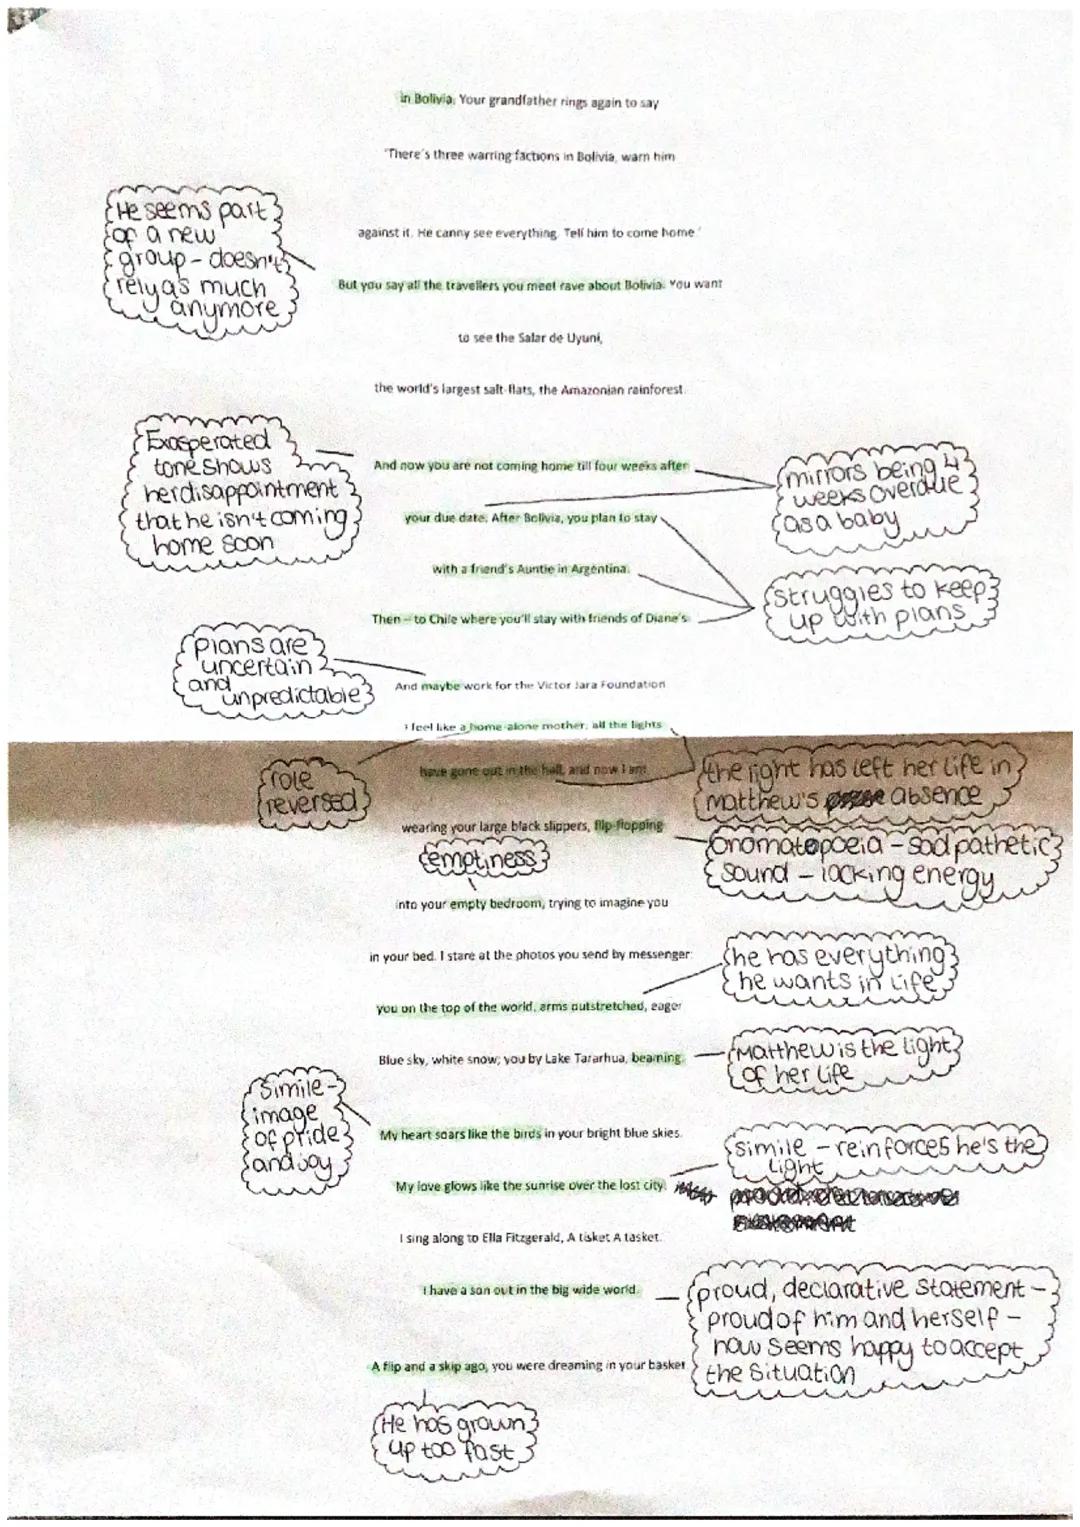 in Bolivia. Your grandfather rings again to say
'There's three warring factions in Bolivia, warn him
He seems part
of a new
group - doesn't
rely as much
anymore
against it. He canny see everything. Tell him to come home.'
But you say all the travellers you meet rave about Bolivia. You want
to see the Salar de Uyuni,
the world's largest salt-flats, the Amazonian rainforest.
Exasperated
tone shows
her disappointment
that he isn't coming
home soon
And now you are not coming home till four weeks after
your due date. After Bolivia, you plan to stay
mirrors being 4
weeks overdue
as a baby
with a friend's Auntie in Argentina.
struggles to keep
up with plans
Then – to Chile where you'll stay with friends of Diane's.
plans are
uncertain
and
unpredictable
And maybe work for the Victor Jara Foundation
I feel like a home-alone mother; all the lights
role
reversed
have gone out in the hall, and now I am
the light has left her life in
Matthew's absence
wearing your large black slippers, flip-flopping
onomatopoeia - sad pathetic
sound - lacking energy
emptiness
into your empty bedroom, trying to imagine you
in your bed. I stare at the photos you send by messenger:
he has everything
he wants in life
you on the top of the world, arms outstretched, eager
Blue sky, white snow; you by Lake Tararhua, beaming.
Matthew is the light
of her life
Simile -
image
of pride
and joy
My heart soars like the birds in your bright blue skies.
simile - reinforces he's the
light
My love glows like the sunrise over the lost city.
I sing along to Ella Fitzgerald, A tisket A tasket.
I have a son out in the big wide world.
proud, declarative statement -
proud of him and herself -
now seems happy to accept
the situation
A flip and a skip ago, you were dreaming in your basket
He has grown
up too fast